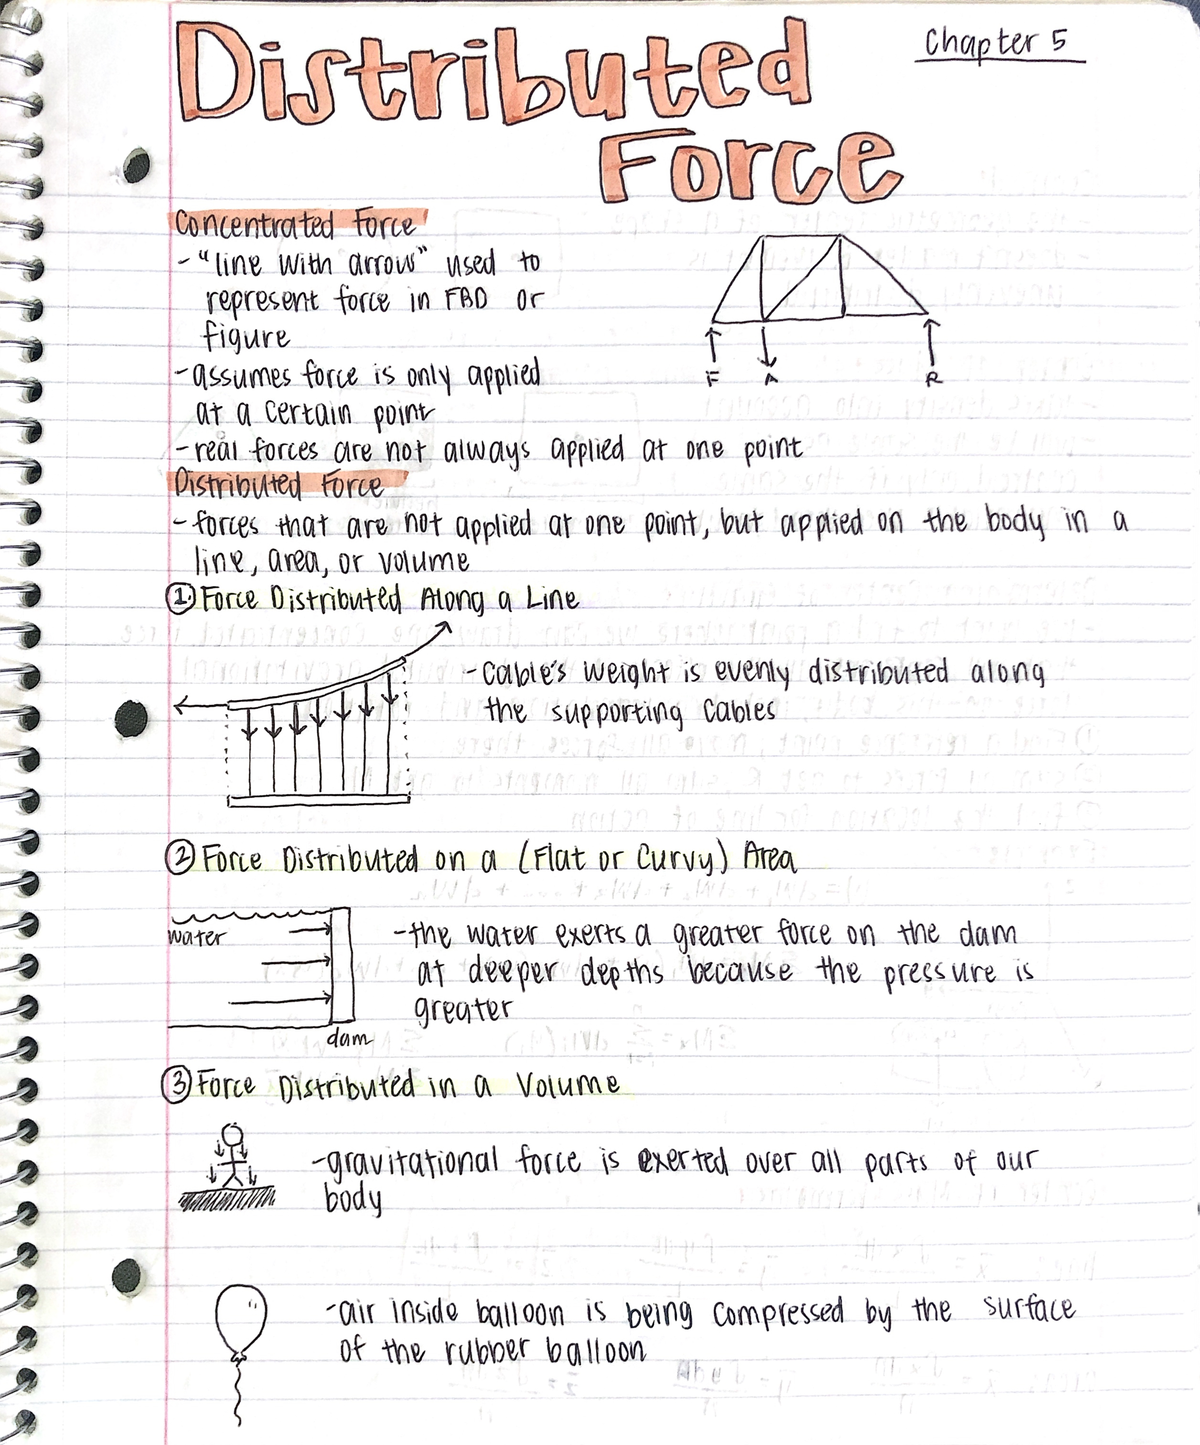 Distributed
Chapter 5
Force
Concentrated Force
- "line with arrow" used to
represent force in FBD or
figure
F A R
- assumes force is only applied
at a certain point
- real forces are not always applied at one point
Distributed Force
- forces that are not applied at one point, but applied on the body in a
line, area, or volume
① Force Distributed Along a Line
- cable's weight is evenly distributed along
the supporting cables
② Force Distributed on a (Flat or Curvy) Area
water
- the water exerts a greater force on the dam
at deeper depths because the pressure is
greater
dam
③ Force Distributed in a Volume
- gravitational force is exerted over all parts of our
body
- air inside balloon is being compressed by the surface
of the rubber balloon